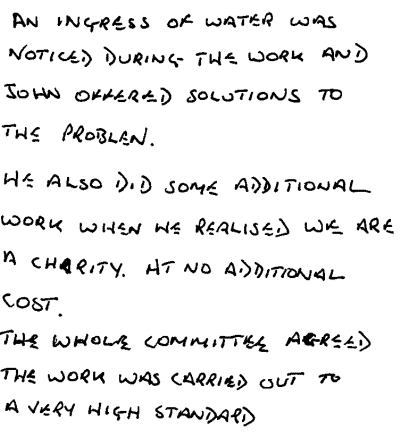 AN INGRESS OF WATER WAS
NOTICED DURING THE WORK AND
JOHN OFFERED SOLUTIONS TO
THE PROBLEM.
HE ALSO DID SOME ADDITIONAL
WORK WHEN HE REALISED WE ARE
A CHARITY. AT NO ADDITIONAL
COST.
THE WHOLE COMMITTEE AGREED
THE WORK WAS CARRIED OUT TO
A VERY HIGH STANDARD